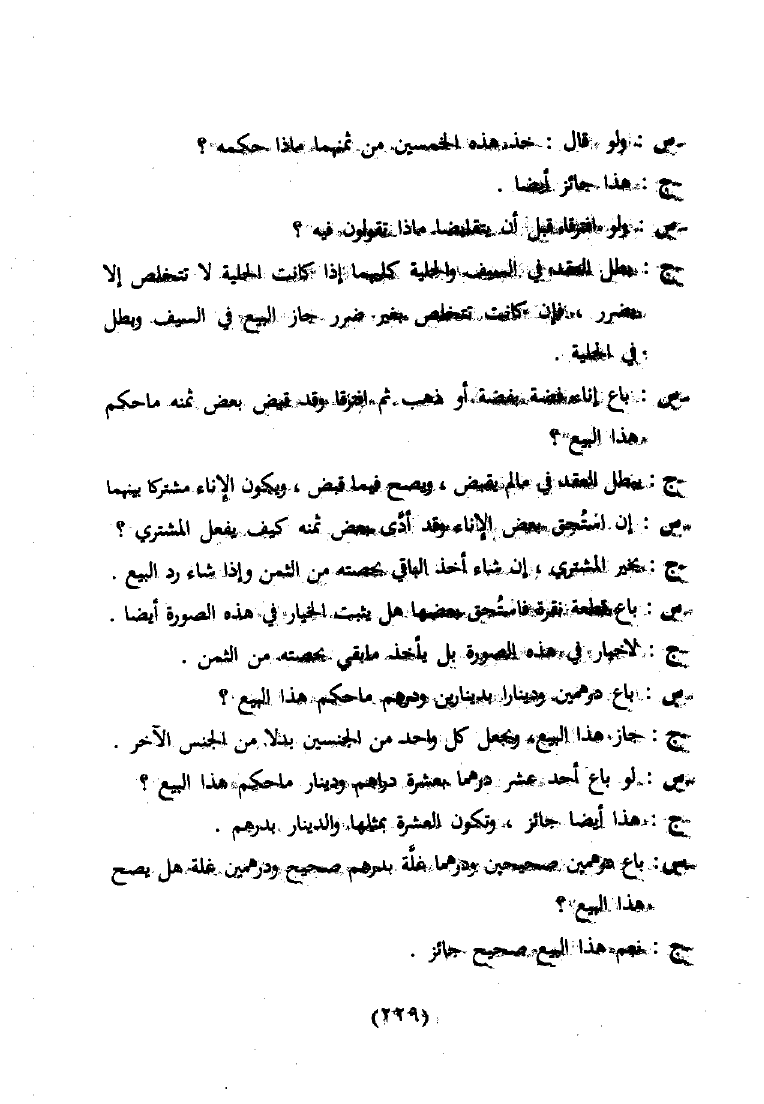 س : ولو قال : خذ هذه الخمسين من ثمنهما ماذا حكمه ؟
ج : هذا جائز أيضا .
س : ولو افترقا قبل أن يتقابضا ماذا تقولون فيه ؟
ج : بطل العقد في السيف والحلية كليهما إذا كانت الحلية لا تتخلص إلا
بضرر ، فإن كانت تتخلص بغير ضرر جاز البيع في السيف وبطل
في الحلية .
س : باع إناء فضة بفضة أو ذهب ثم افترقا وقد قبض بعض ثمنه ماحكم
هذا البيع ؟
ج : يبطل العقد في مالم يقبض ، ويصح فيما قبض ، ويكون الإناء مشتركا بينهما
س : إن استُحِق بعض الإناء وقد أدَّى بعض ثمنه كيف يفعل المشتري ؟
ج : يخير المشتري ، إن شاء أخذ الباقي بحصته من الثمن وإذا شاء رد البيع .
س : باع قطعة نقرة فاستُحق بعضها هل يثبت الخيار في هذه الصورة أيضا .
ج : لاخيار في هذه الصورة بل يأخذ مابقي بحصته من الثمن .
س : باع درهمين ودينارا بدينارين ودرهم ماحكم هذا البيع ؟
ج : جاز هذا البيع، ويجعل كل واحد من الجنسين بدلا من الجنس الآخر .
س : لو باع أحد عشر درهما بعشرة دراهم ودينار ماحكم هذا البيع ؟
ج : هذا أيضا جائز ، وتكون العشرة بمثلها والدينار بدرهم .
س : باع درهمين صحيحين ودرهما غلَّة بدرهم صحيح ودرهمين غلة هل يصح
هذا البيع ؟
ج : نعم هذا البيع صحيح جائز .
(٢٢٩)